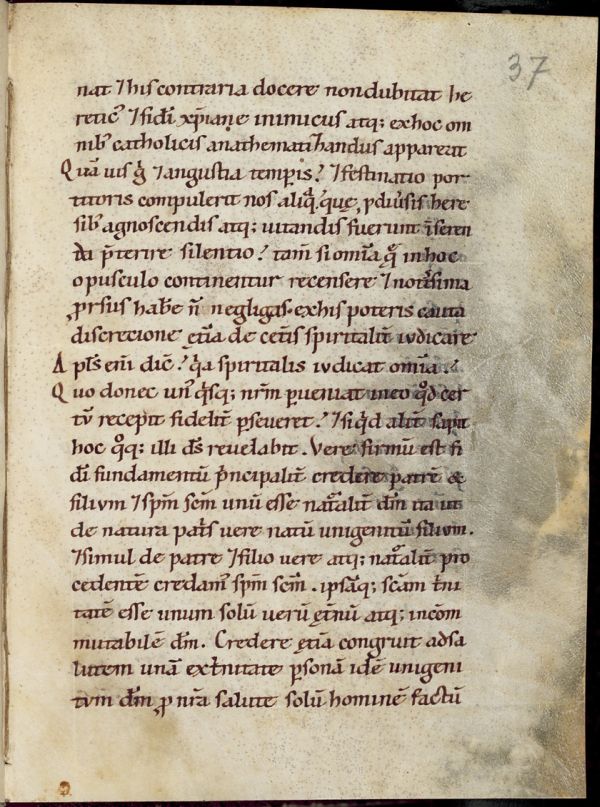 37
nat ⁊ his contraria docere non dubitat he
retic᷒ ⁊ fidei xp̄iane inimicus atq; ex hoc om
nib᷒ catholicis anathematizandus apparent
Quā uis g̊ ⁊ angustia temporis ⁊ festinatio por
titoris compulerit nos aliq̄ que ꝓ diuersis here
sib᷒ agnoscendis atq; uitandis fuerunt īseren
da p̄terire silentio tam̄ si om̄ia q̄ in hoc
opusculo continentur recensere ⁊ notissima
ꝓrsus habe n̄ negligas. ex his poteris cauta
discretione etiā de cet̄is spiritalit̄ iudicare
Apl̄s eni dic̄ q̇a spiritalis iudicat om̄ia.
Quo donec un᷒ q̇sq; nr̄m ꝑueniat in eo q̇d cer
tū recepit fidelit̄ ꝑseueret ⁊ si q̇d alit̄ sapit
hoc q̊q; illi d̄s reuelabit. Vere firmū est fi
dei fundamentū p̄ncipalit̄ credere patrē &
filium ⁊ sp̄m sc̄m unū esse nat̄alit̄ d̄m ita ut
de natura pat̄s uere natū unigenitū filium.
⁊ simul de patre ⁊ filio uere atq; nat̄alit̄ pro
cedentē credam᷒ sp̄m sc̄m. ipsāq; sc̄am t̄ni
tatē esse unum solū uerū et̄nū atq; incom
mutabilē d̄m. Credere etiā congruit ad sa
lutem unā ex t̄nitate ꝑsonā idē unigeni
tum d̄m ꝓ nr̄a salute solū hominē factū